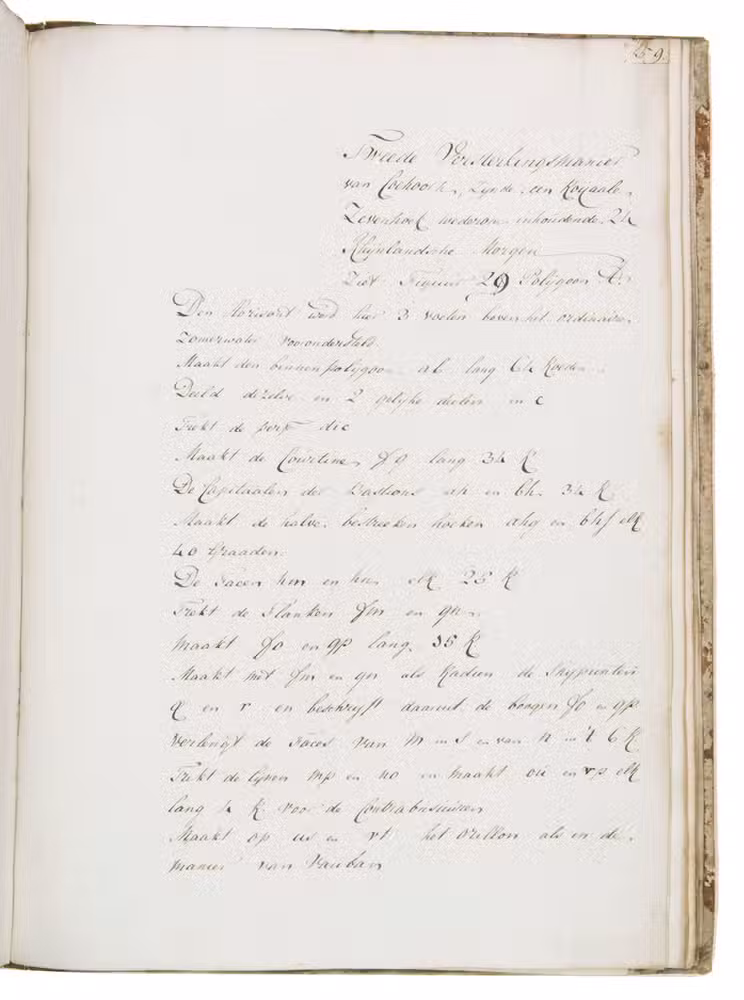 259.
Tweede Versterkingsmanier
van Coehoorn, Zynde een Royaale
Zevenhoek wederom inhoudende 24
Rhijnlandsche Morgen
Ziet Figuur 29 Polijgoon A.
Den Horisont werd hier 3 voeten boven het ordinaire
Zomerwater vooronderstelt.
Maakt den binnenpolijgoon ab lang 64 Roeden
Deeld dezelve in 2 gelijke deelen in c
Trekt de perp dic
Maakt de Courtine fg lang 34 R
De Capitaalen der Bastions ah en bh 34 R
Maakt de halve bestreeken hoeken ahg en bhf elk
40 Graaden.
De Facen hm en hn elk 25 R
Trekt de Flanken fm en gn
Maakt fo en gp lang 35 R
Maakt met fm en gn als Radien de Snypunten
q en r en beschryft daaruit de boogen fo en gp
verlengt de Faces van m in s en van n in t 6 R
Trekt de lijnen mp en no en maakt ou en vp elk
lang 4 R voor de Contrabresuisen
Maakt op us en vt het orillon als in de
manier van Vauban